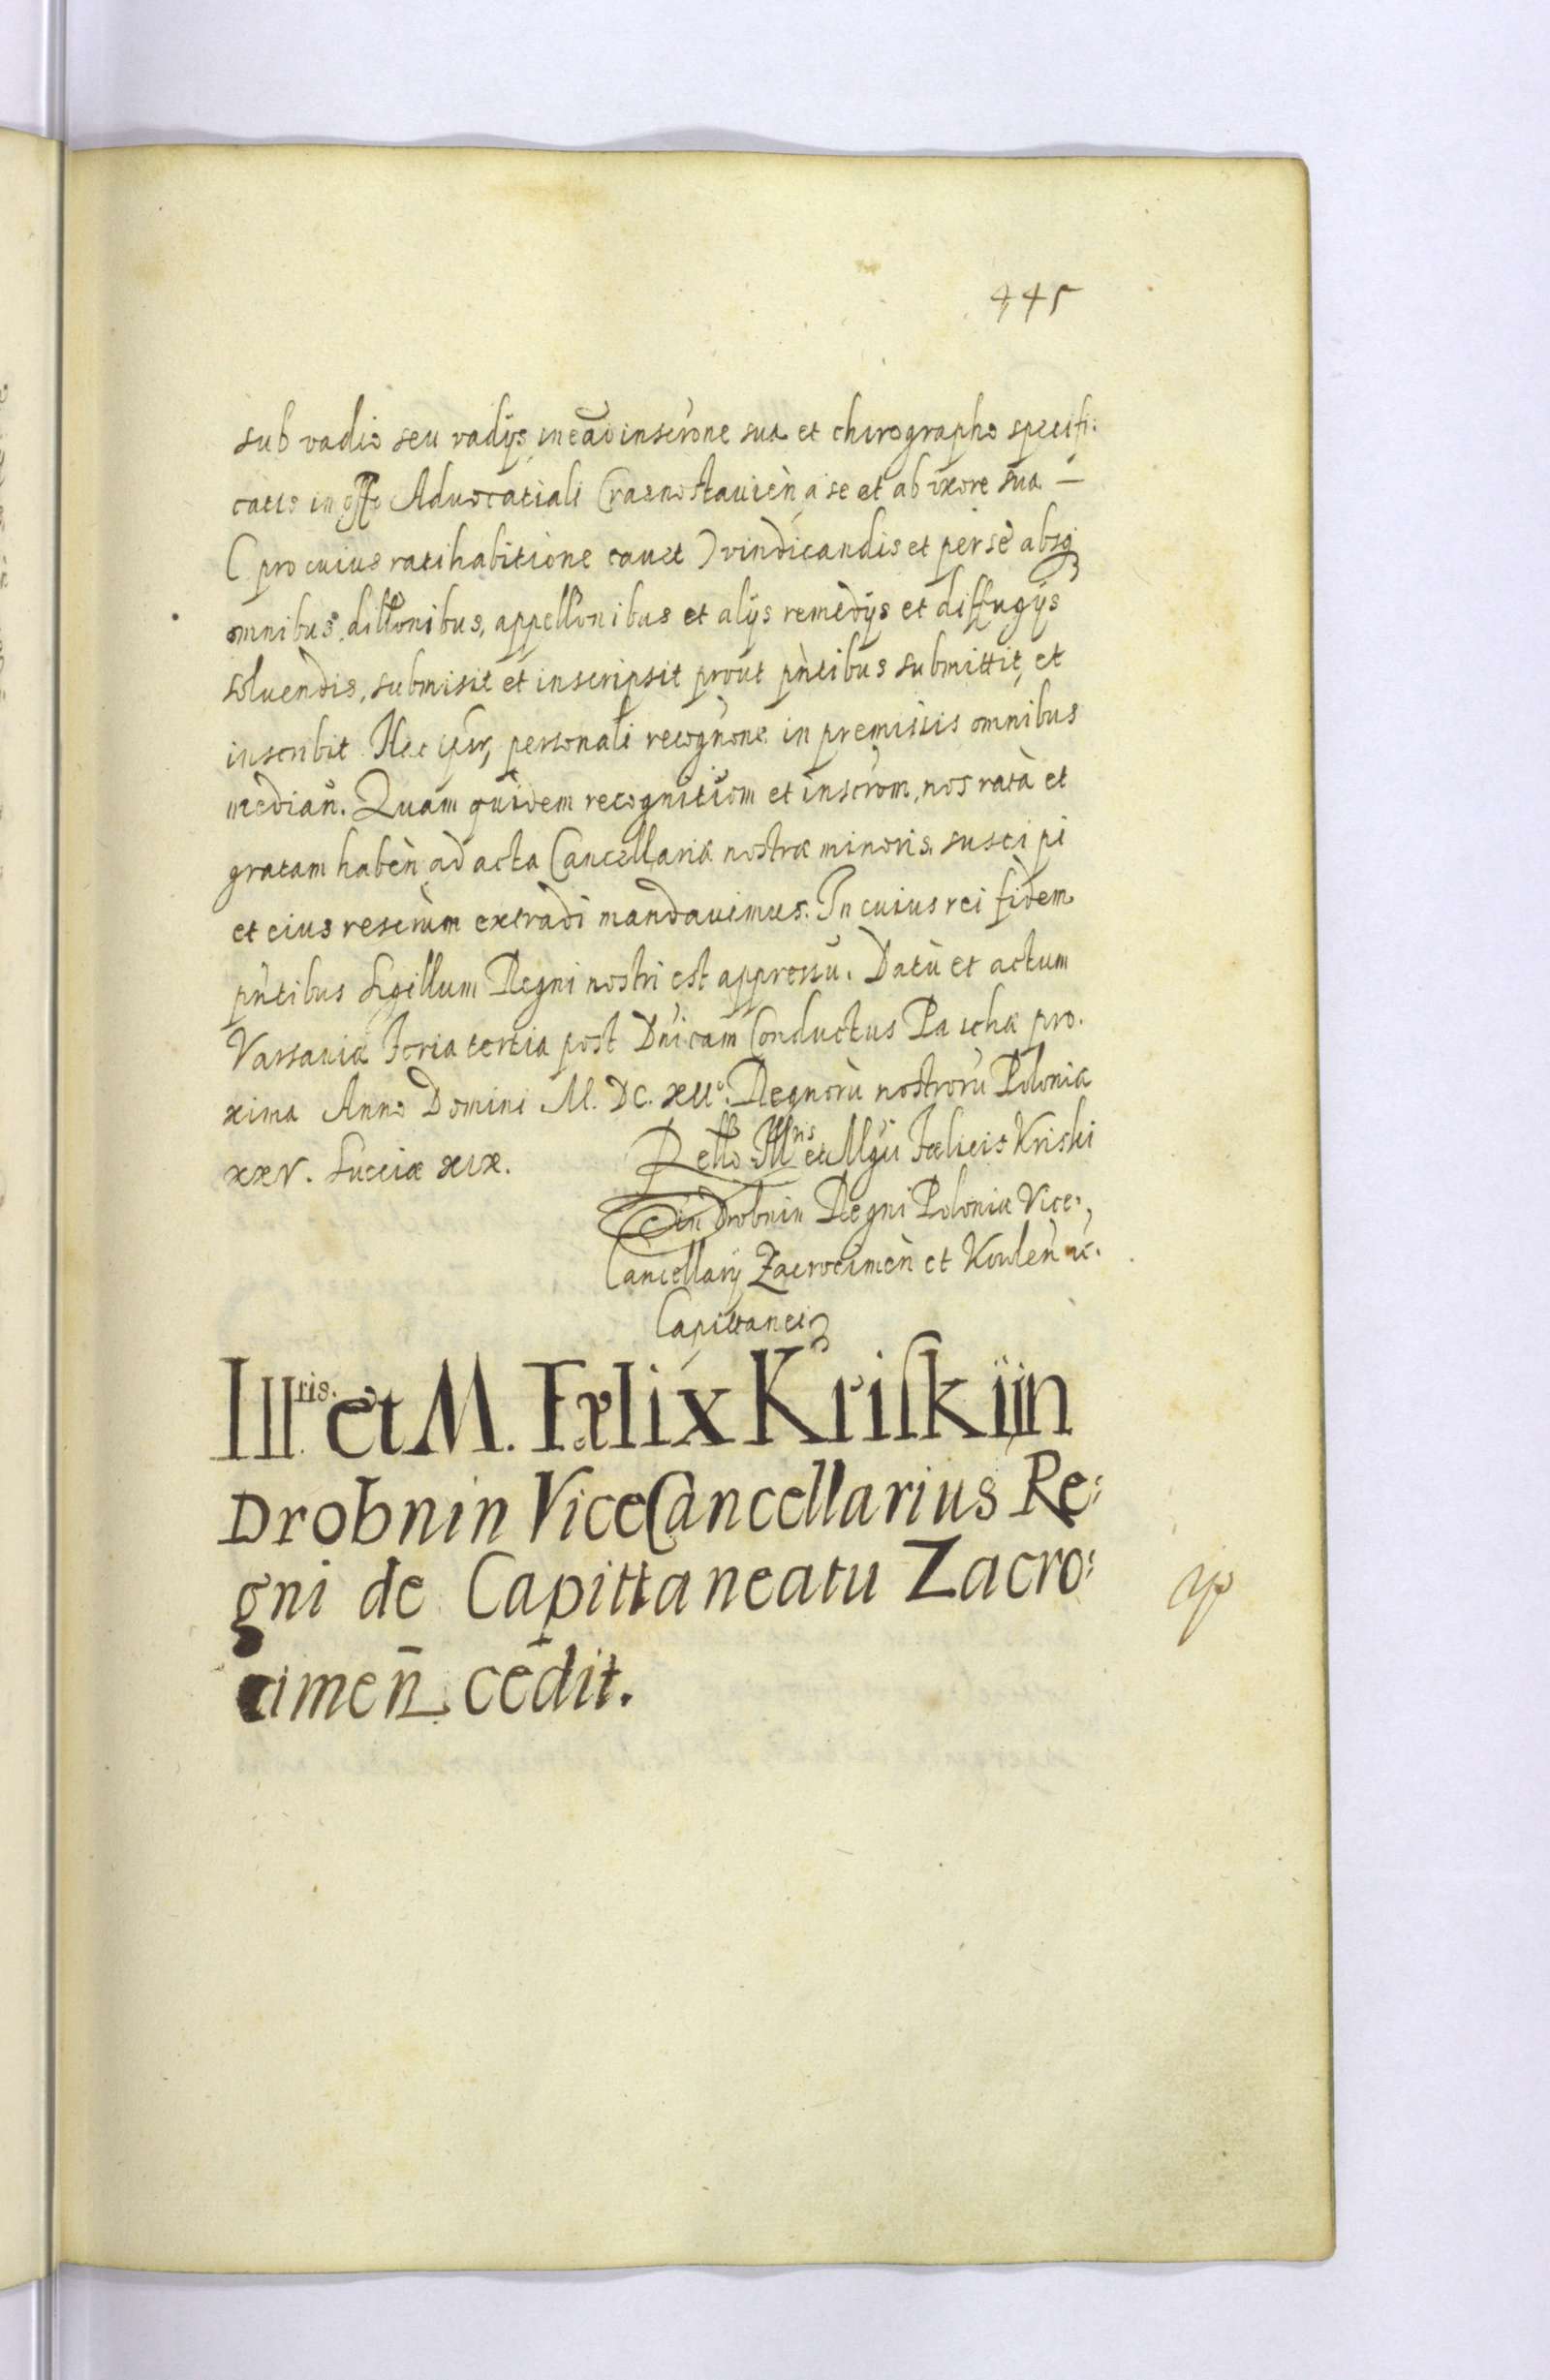 445
sub vadio seu vadijs, in ead inscrone sua et chirographo specifi:
catis in offo Advocatiali Crasnostauien a se et ab uxore sua —
( pro cuius ratihabitione cauet ) vindicandis et per se absq
omnibus dillonibus, appellonibus et alijs remedijs et diffugijs
soluendis, submisit et inscripsit prout pntibus submittit, et
inscribit personali recognone in premissis omnibus
median. Quam quidem recognitiom et inscrom, nos rata et
gratam haben ad acta Cancellariæ nostræ minoris suscipi
et eius rescrum extradi mandauimus. In cuius rei fidem
pntibus Sigillum Regni nostri est appressu. Datu et actum
Varsauiæ Feria tertia post Dnicam Conductus Paschæ pro.
xima Anno Domini M. DC. XII°. Regnoru nostroru Poloniæ
XXV. Sueciæ XIX.
Rello Illris et Mgci Fœlicis Kriski
in Drobnin Regni Poloniæ Vice:,
Cancellarij Zacrocimen et Kowlen
Capittanei
Illris. et M. Fælix Kriski in
Drobnin ViceCancellarius Re:
gni de Capittaneatu Zacro:
cimen cedit.